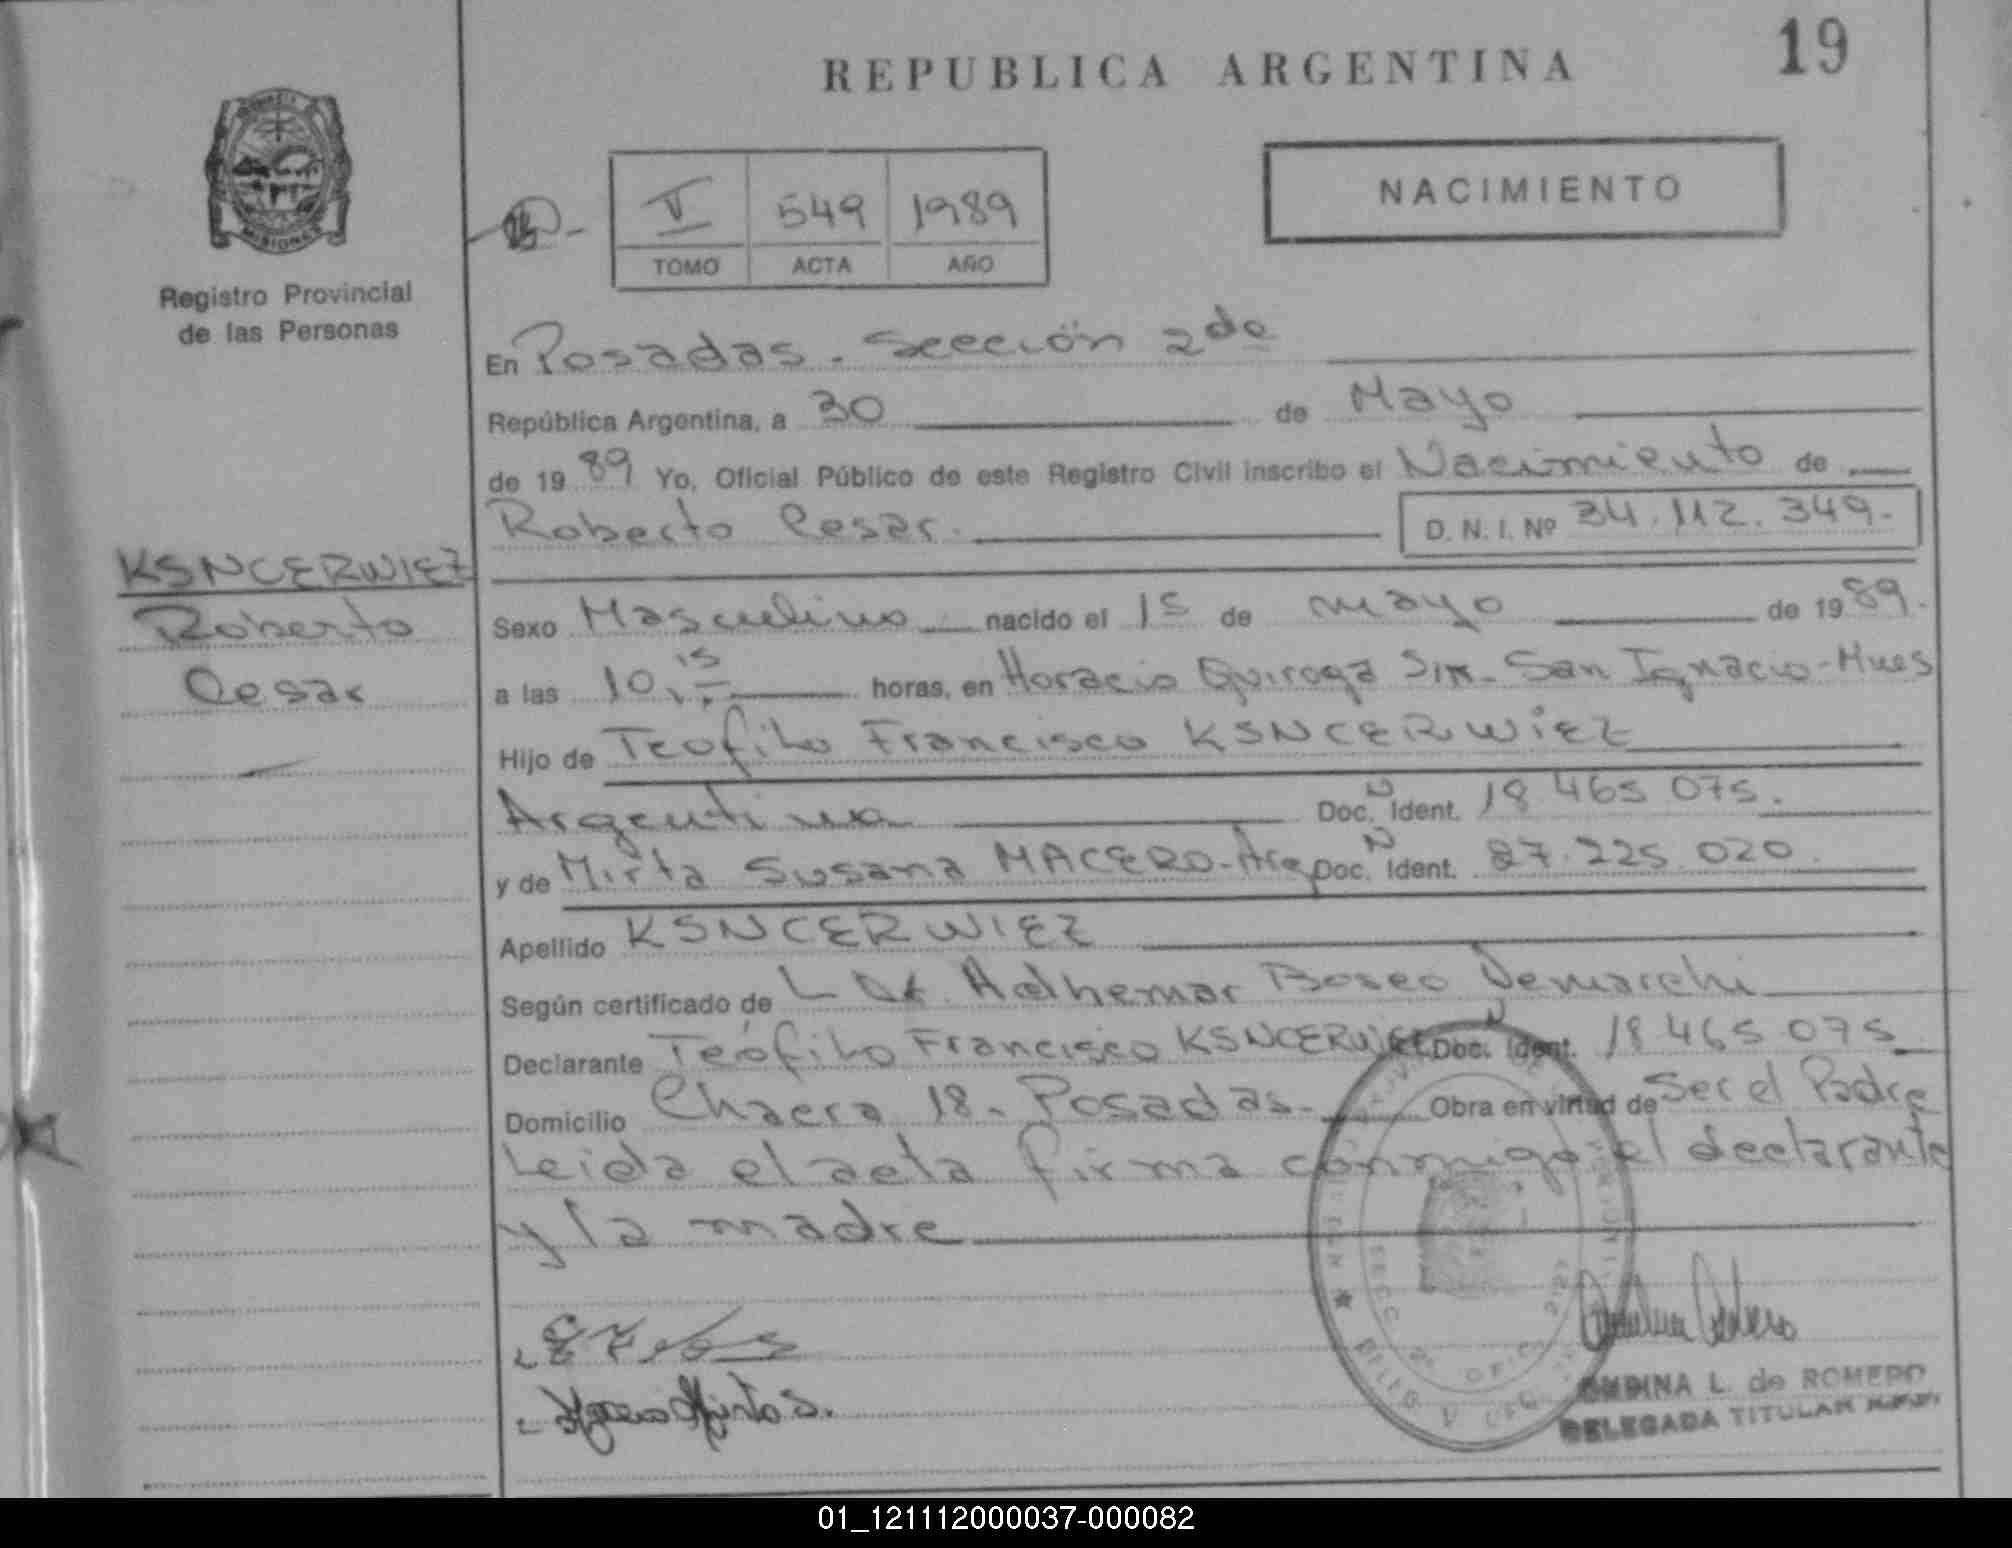 REPUBLICA ARGENTINA
19
MISIONES
Registro Provincial
de las Personas
V 549 1989
TOMO ACTA AÑO
NACIMIENTO
En Posadas. Sección 2da
República Argentina, a 30 de Mayo
de 1989 Yo, Oficial Público de este Registro Civil inscribo el Nacimiento de
Roberto Cesar. D. N. I. Nº 34.112.349.
KSNCERWIEZ
Roberto
Cesar
Sexo Masculino nacido el 15 de mayo de 1989.
a las 10,15 horas, en Horacio Quiroga S/N- San Ignacio-Mnes
Hijo de Teofilo Francisco KSNCERWIEZ
Argentina Doc. N Ident. 18 465 075.
y de Mirta Susana MACERO-Arg Doc. N Ident. 27.225.020.
Apellido KSNCERWIEZ
Según certificado de L Dr. Adhemar Bosco Demarchi
Declarante Teófilo Francisco KSNCERWIEZ Doc. N Ident. 18 465 075
Domicilio Chacra 18. Posadas. Obra en virtud de Ser el Padre
Leida el acta firma conmigo el declarante
y la madre
SECC 2ª OFIC
L. de ROMERO
DELEGADA TITULAR R.P.P.
01_121112000037-000082